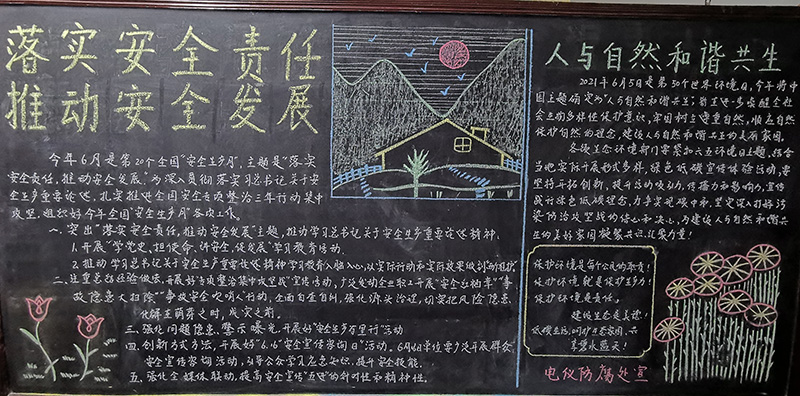 落实安全责任
推动安全发展
今年6月是第20个全国"安全生产月",主题是"落实
安全责任,推动安全发展",为深入贯彻落实习总书记关于安
全生产重要论述,扎实推进全国安全专项整治三年行动集中
攻坚,组织好今年全国"安全生产月"各项工作。
一、突出"落实安全责任,推动安全发展"主题,推动学习总书记关于安全生产重要论述精神。
1.开展"学党史、担使命、讲安全、促发展"学习教育活动。
2.推动学习总书记关于安全生产重要论述精神学习教育入脑入心,以实际行动和实际效果做到"两个维护"
二、注重总结经验做法,开展好专项整治集中攻坚战"宣传活动,广泛发动企业职工开展"安全公约章""事
故隐患大扫除""争做安全吹哨人"行动,全面自查自纠,强化源头治理,切实把风险隐患
化解在萌芽之时、成灾之前。
三、强化问题隐患、警示曝光,开展好"安全生产万里行"活动
四、创新方式方法,开展好"6.16"安全宣传咨询日"活动。6月16日单位要广泛开展群众
安全宣传咨询活动,引导公众学习应急知识、提升安全技能。
五、强化全媒体联动,提高安全宣传"五进"的针对性和精神性。
人与自然和谐共生
2021年6月5日是第50个世界环境日,今年将中
国主题确定为"人与自然和谐共生",旨在进一步唤醒全社
会生物多样性保护意识,牢固树立尊重自然、顺应自然
保护自然的理念,建设人与自然和谐共生的美丽家园。
各级生态环境部门要紧扣六五环境日主题,结合
当地实际开展形式多样、绿色低碳宣传体验活动,要
坚持开拓创新,提升活动吸引力、传播力和影响力,宣传
践行绿色低碳理念,力争实现碳中和,坚定深入打好污
染防治攻坚战的信心和决心,为建设人与自然和谐共
生的美好家园凝聚共识,汇聚力量!
保护环境是每个公民的职责!
保护环境就是保护生产力!
保护环境是责任。
建设生态是美德!
低碳生活,呵护生态家园,共
享碧水蓝天!
电仪防腐处宣